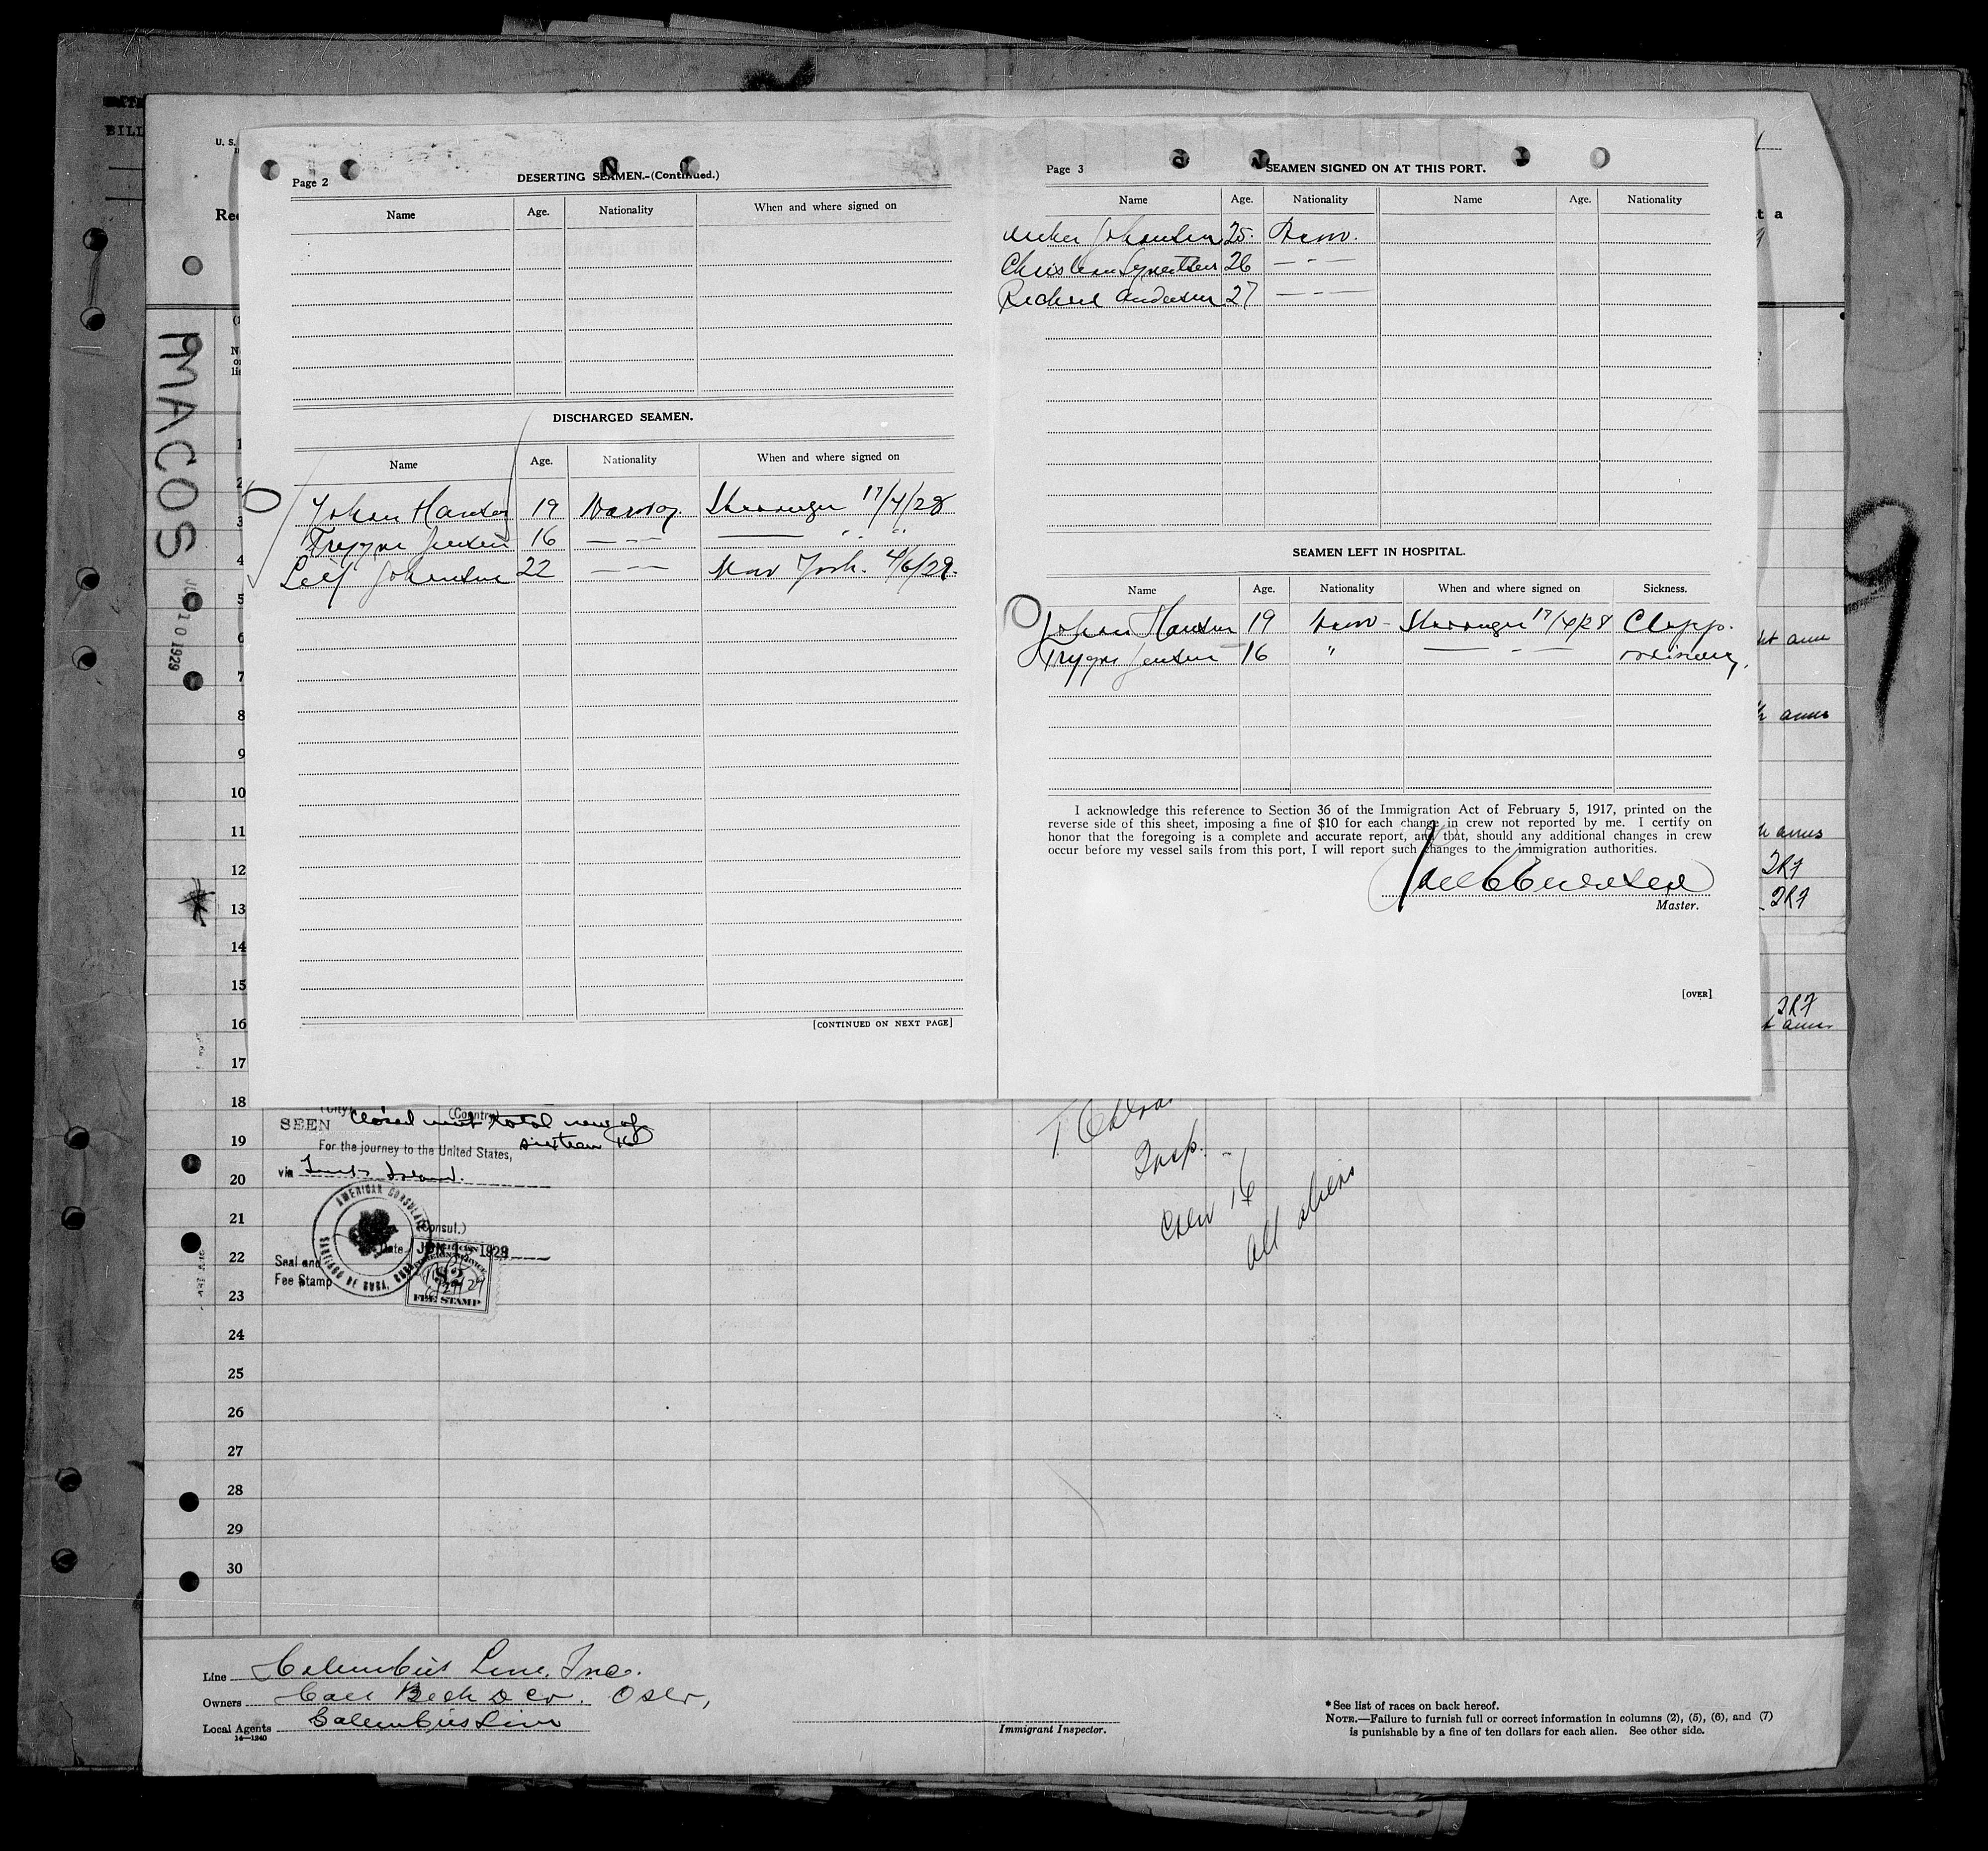 BILL
U. S.
Page 2
DESERTING SEAMEN.-(Continued.)
Name Age. Nationality When and where signed on
DISCHARGED SEAMEN.
Name Age. Nationality When and where signed on
Johan Hansen 19 Norway. 17/4/28
Trygve Jensen 16 — - — —— " "
Leif Johansen 22 — - — New York. 4/6/29.
[CONTINUED ON NEXT PAGE]
Page 3
SEAMEN SIGNED ON AT THIS PORT.
Name Age. Nationality Name Age. Nationality
Johansen 25. Norw.
Christian Syvertsen 26 — - —
Andersen 27 — - —
SEAMEN LEFT IN HOSPITAL.
Name Age. Nationality When and where signed on Sickness.
Johan Hansen 19 Norw - 17/4/28 Clapp.
Trygve Jensen 16 " — - —
I acknowledge this reference to Section 36 of the Immigration Act of February 5, 1917, printed on the
reverse side of this sheet, imposing a fine of $10 for each change in crew not reported by me. I certify on
honor that the foregoing is a complete and accurate report, and that, should any additional changes in crew
occur before my vessel sails from this port, I will report such changes to the immigration authorities.
Master.
[OVER]
MACOS
10 1929
9
1
2
3
4
5
6
7
8
9
10
11
12
13
14
15
16
17
18
19
20
21
22
23
24
25
26
27
28
29
30
(City) (Country)
SEEN Closed with total crew of
sixteen 16
For the journey to the United States,
via Island.
AMERICAN CONSULATE
SANTIAGO DE CUBA, CUBA
(Consul.)
Date JUN 1929
Seal and
Fee Stamp
$2
FEE STAMP
Insp.
Crew 16
all aliens
Line Columbus Line, Inc.
Owners Bech & Co. Oslo,
Local Agents Columbus Line
14—1240
Immigrant Inspector.
*See list of races on back hereof.
NOTE.—Failure to furnish full or correct information in columns (2), (5), (6), and (7)
is punishable by a fine of ten dollars for each alien. See other side.